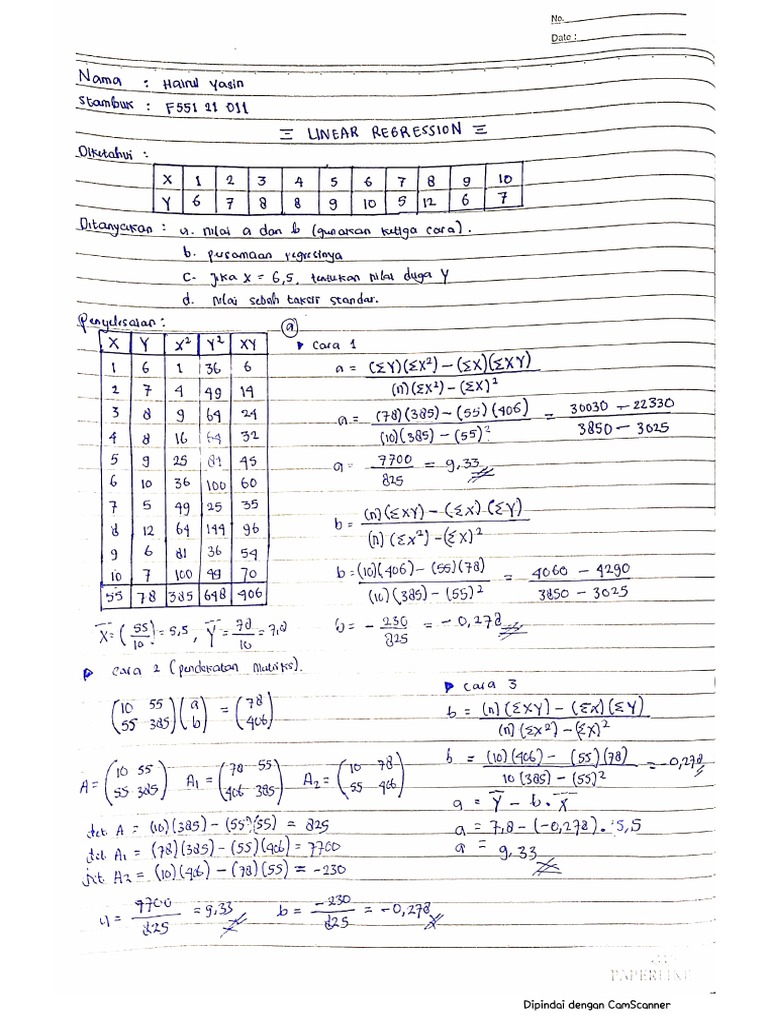 No.
Date :
Nama : Hairul Yasin
Stambuk : F551 21 011
LINEAR REGRESSION
Diketahui :
X 1 2 3 4 5 6 7 8 9 10
Y 6 7 8 8 9 10 5 12 6 7
Ditanyakan : a. nilai a dan b (gunakan ketiga cara).
b. persamaan regresinya
c. jika x = 6,5, tentukan nilai duga Y
d. nilai sebah taksir standar.
Penyelesaian :
X Y X² Y² XY
1 6 1 36 6
2 7 4 49 14
3 8 9 64 24
4 8 16 64 32
5 9 25 81 45
6 10 36 100 60
7 5 49 25 35
8 12 64 144 96
9 6 81 36 54
10 7 100 49 70
55 78 385 648 406
X̄ = (55/10) = 5,5, Ȳ = 78/10 = 7,8
(a)
Cara 1
a = (ΣY)(ΣX²) – (ΣX)(ΣXY) / (n)(ΣX²) – (ΣX)²
a = (78)(385) – (55)(406) / (10)(385) – (55)² = 30030 – 22330 / 3850 – 3025
a = 7700 / 825 = 9,33
b = (n)(ΣXY) – (ΣX)(ΣY) / (n)(ΣX²) – (ΣX)²
b = (10)(406) – (55)(78) / (10)(385) – (55)² = 4060 – 4290 / 3850 – 3025
b = – 230 / 825 = – 0,278
Cara 2 (pendekatan Matriks).
(10 55 / 55 385) (a / b) = (78 / 406)
A = (10 55 / 55 385) A₁ = (78 55 / 406 385) A₂ = (10 78 / 55 406)
det A = (10)(385) – (55)(55) = 825
det A₁ = (78)(385) – (55)(406) = 7700
det A₂ = (10)(406) – (78)(55) = –230
a = 7700 / 825 = 9,33 b = –230 / 825 = –0,278
Cara 3
b = (n)(ΣXY) – (ΣX)(ΣY) / (n)(ΣX²) – (ΣX)²
b = (10)(406) – (55)(78) / 10(385) – (55)² = –0,278
a = Ȳ – b . X̄
a = 7,8 – (–0,278) . 5,5
a = 9,33
PAPERLINE
Dipindai dengan CamScanner